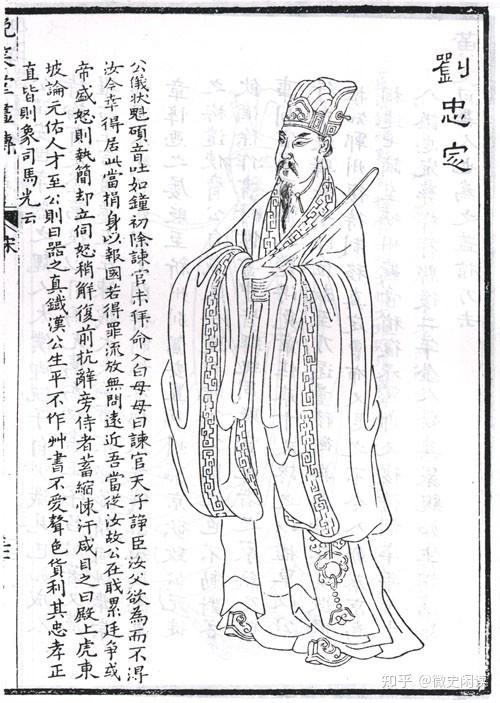 劉忠定
公儀狀魁碩音吐如鐘初除諫官未拜命入白母母曰諫官天子諍臣汝父欲為而不得
汝今幸得居此當捐身以報國若得罪流放無問遠近吾當從汝故公在職累廷爭或
帝盛怒則執簡却立伺怒稍解復前抗辭旁侍者蓄縮悚汗咸目之曰殿上虎東
坡論元佑人才至公則曰器之真鐵漢公生平不作艸書不愛聲色貨利其忠孝正
直皆則象司馬光云
晚笑堂畫傳
宋
知乎 @微史闲读